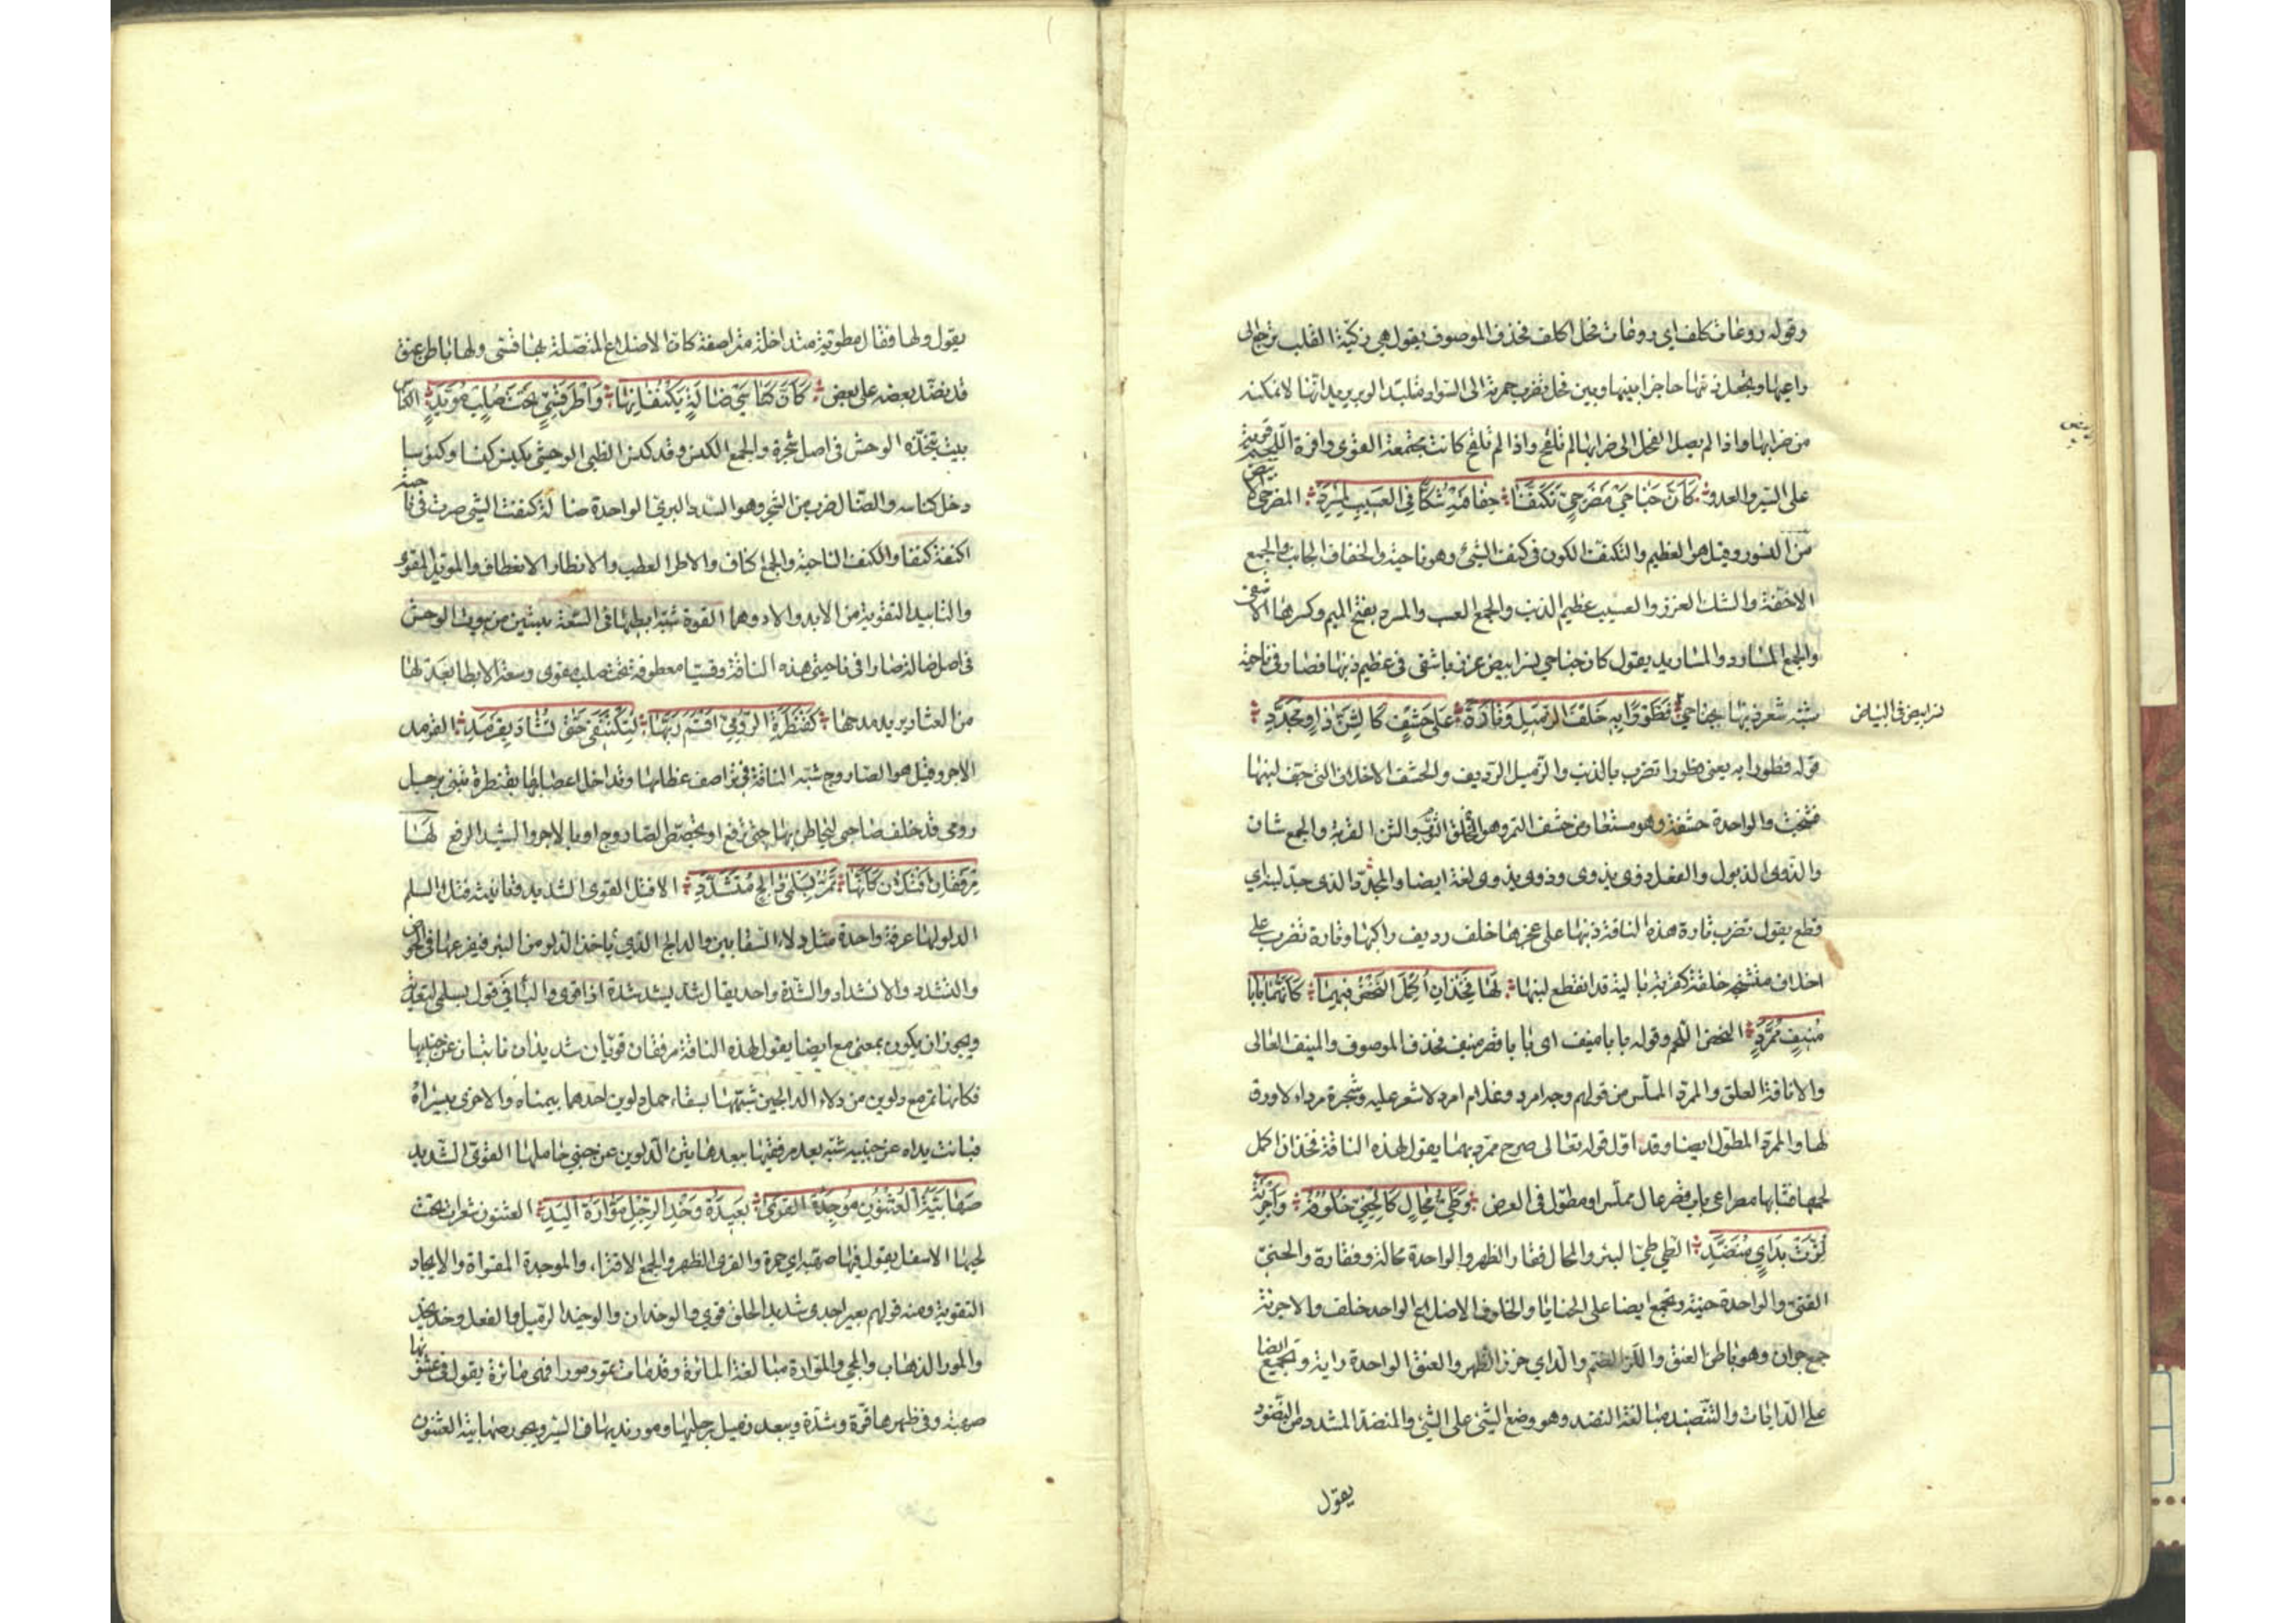 وقوله روعات كلف اى روعات فحل اكلف فحذف الموصوف يقول هى زكيّة القلب ترجع الى
راعيها وتجعل ذنبها حاجزا بينها وبين فحل تضرب حمرته الى السواد متلبّد الوبر يريد انّها لا تمكنه
من ضرابها واذا لم يصل الفحل الى ضرابها لم تلقح واذا لم تلقح كانت مجتمعة القوى وافرة اللحم قوية
على السير والعدو كَأَنَّ جَنَاحَيْ مَضْرَحِيٍّ تَكَنَّفَا حِفَافَيْهِ شُكَّا فِي العَسِيبِ بِمِسْرَدِ المضرحى الابيض
من النسور وقيل هو العظيم والتكنّف الكون فى كنف الشئ وهو ناحيته والحفاف الجانب والجمع
الاحفة والشك الغرز والعسيب عظم الذنب والجمع العسب والمسرد بفتح الميم وكسرها الاشفى
والجمع المسارد والمساريد يقول كان جناحى نسر ابيض غرزا باشفى فى عظم ذنبها فصارا فى ناحيته
شبّه شعر ذنبها بجناحى نسر ابيض فى البياض فَطَوْرًا بِهِ خَلْفَ الزَّمِيلِ وَتَارَةً عَلَى حَشَفٍ كَالشَّنِّ ذَاوٍ مُجَدَّدِ
قوله فطورا به يعنى فطورا تضرب بالذنب والزميل الرديف والحشف الاخلاف التى جف لبنها
فتشنجت والواحدة حشفة وهو مستعار من حشف التمر وهو الخلق الثوب والشن القربة والجمع شنان
والذوى الذبول والفعل ذوى يذوى وذوى يذوى لغة ايضا والمجدّد الذى جدّ لبنه اى
قطع يقول تضرب تارة هذه الناقة ذنبها على عجزها خلف رديف راكبها وتارة تضرب على
اخلاف متشنجة خلقة كقربة بالية قد انقطع لبنها لَهَا فَخِذَانِ أُكْمِلَ النَّحْضُ فِيهِمَا كَأَنَّهُمَا بَابَا
مُنِيفٍ مُمَرَّدِ النحض اللحم وقوله بابا منيف اى بابا قصر منيف فحذف الموصوف والمنيف العالى
والانافة العلو والممرّد المملّس من قولهم وجه امرد وغلام امرد لا شعر عليه وشجرة مرداء لا ورق
لها والممرّد المطوّل ايضا وقد اوّل قوله تعالى صرح ممرّد بهما يقول لهذه الناقة فخذان اكمل
لحمهما فشابها مصراعى باب قصر عال مملّس او مطوّل فى العرض وَطَيُّ مَحَالٍ كَالحَنِيِّ خُلُوفُهُ وَأَجْرِنَةٌ
لُزَّتْ بِدَأْيٍ مُنَضَّدِ الطى طىّ البئر والمحال فقار الظهر والواحدة محالة وفقارة والحنىّ
القسىّ والواحدة حنيّة وتجمع ايضا على الحنايا والخلوف الاضلاع الواحد خلف والاجرنة
جمع جران وهو باطن العنق واللزّ الضم والداى خرز الظهر والعنق الواحدة داية وتجمع ايضا
على الدايات والتنضيد مبالغة النضد وهو وضع الشئ على الشئ والمنضد المشدد من المنضود
يقول
يقول ولها فقار مطوية متداخلة متراصفة كانّ الاضلاع المتصلة بها قسى ولها باطن عنق
قد نضّد بعضه على بعض كَأَنَّ كِنَاسَيْ ضَالَةٍ يَكْنُفَانِهَا وَأَطْرَ قِسِيٍّ تَحْتَ صُلْبٍ مُؤَيَّدِ الكناس
بيت يتخذه الوحش فى اصل شجرة والجمع الكنس وقد كنس الظبى الوحشى يكنس كنسا وكنوسا
دخل كناسه والضال ضرب من الشجر وهو السدر البرى الواحدة ضالة كنفت الشئ صرت فى ناحيته
اكنفه كنفا والكنف الناحية والجمع اكناف والاطر العطف والانئطار الانعطاف والمؤيّد المقوّى
والتاييد التقوية من الايد والاد وهما القوة شبّه ابطيها فى السعة ببيتين من بيوت الوحش
فى اصل ضالة صارا فى ناحيتى هذه الناقة وقسيا معطوفة تحت صلب مقوى وسعة الابط ابعد لها
من العثار يريد مدحها كَقَنْطَرَةِ الرُّومِيِّ أَقْسَمَ رَبُّهَا لَتُكْتَنَفَنْ حَتَّى تُشَادَ بِقَرْمَدِ القرمد
الاجر وقيل هو الصاروج شبّه الناقة فى تراصف عظامها وتداخل اعضائها بقنطرة تبنى لرجل
رومى قد حلف صاحبها ليحاطن بها حتى ترفع او تجصّص بالصاروج او بالاجر والشيد الرفع لَهَا
مِرْفَقَانِ أَفْتَلَانِ كَأَنَّهَا تَمُرُّ بِسَلْمَيْ دَالِجٍ مُتَشَدِّدِ الافتل القوى الشديد وتانيثه فتلاء السلم
الدلو لها عروة واحدة مثل دلاء السقايين والدالج الذى ياخذ الدلو من البئر فيفرغها فى الحوض
والتشدد والانشداد والشدة واحد يقال شد يشد شدة اذا قوى والباء فى قوله بسلمى للتعدية
ويجوز ان يكون بمعنى مع ايضا يقول لهذه الناقة مرفقان قويان شديدان نائيان عن جنبيها
فكانها تمر مع دلوين من دلاء الدالجين شبّهها بسقاء حمل دلوين احدهما بيمناه والاخرى بيسراه
فبانت يداه عن جنبيه شبّه بعد مرفقيها ببعد هاتين الدلوين عن جنبى حاملها القوى الشديد
صُهَابِيَّةُ العُثْنُونِ مُوجَدَةُ القَرَى بَعِيدَةُ وَخْدِ الرِّجْلِ مَوَّارَةُ اليَدِ العثنون شعرات تحت
لحيها الاسفل يقول فيها صهبة اى حمرة والقرى الظهر والجمع الاقراء والموجدة المقواة والايجاد
التقوية ومنه قولهم بعير اجد اى شديد الخلق قوى والوخدان والوخيد الزميل والفعل وخد يخد
والمور الذهاب والمجى والموّارة مبالغة المائرة وقد مارت تمور مورا فهى مائرة يقول فى عثنونها
صهبة وفى ظهرها قوّة وشدّة ويبعد ذميل رجليها ومور يديها فى السير ويجوز صهابية العثنون
نسر ابيض فى البياض